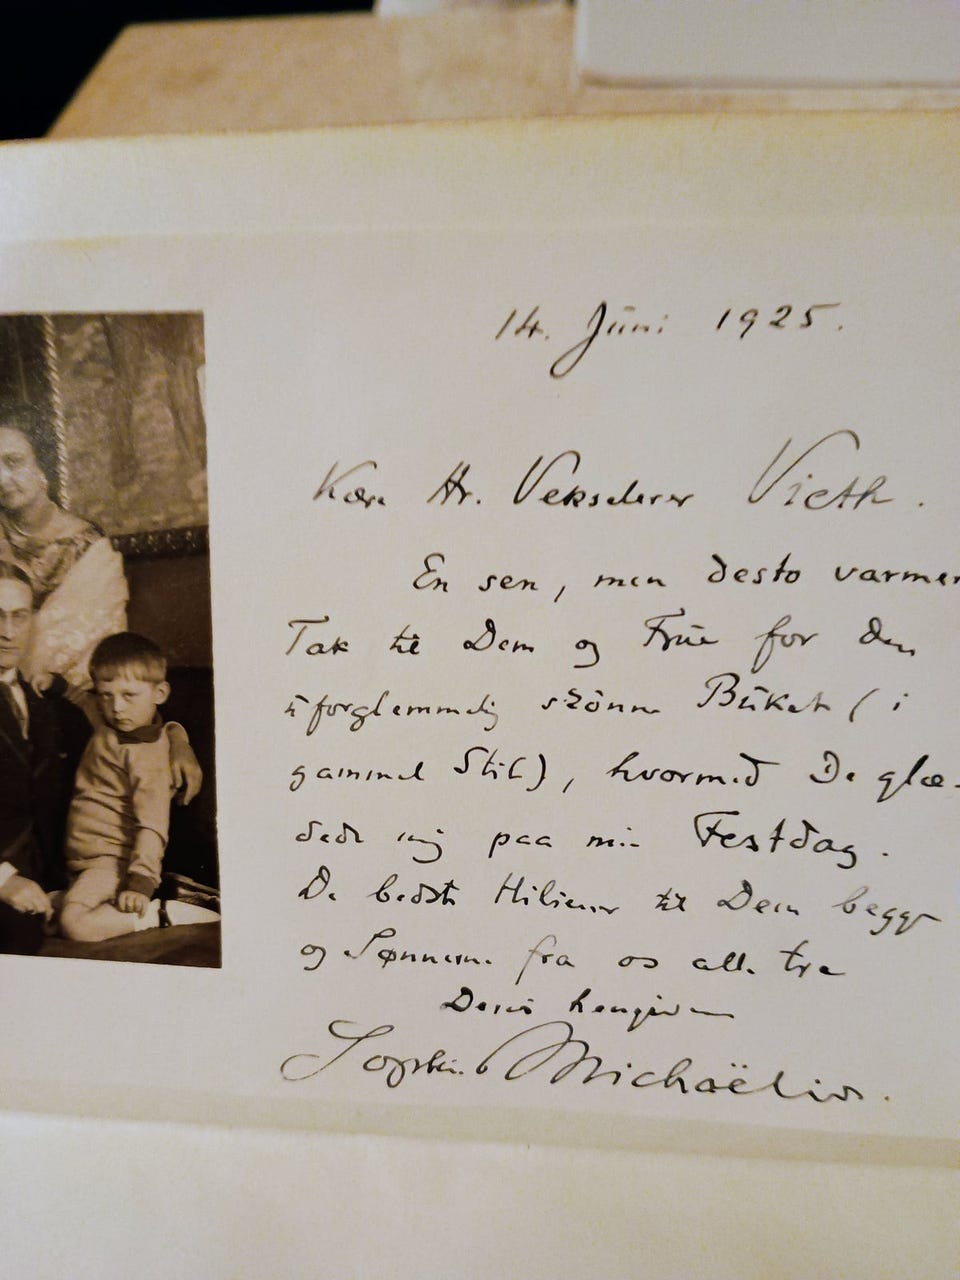 14. Juni 1925.
Kære Hr. Vekselerer Vieth.
En sen, men desto varmere
Tak til Dem og Frue for den
uforglemmelig skönne Buket (i
gammel Stil), hvormed De glæ-
dede mig paa min Festdag.
De bedste Hilsener til Dem begge
og Sønnerne fra os alle tre
Deres hengivne
Sophus Michaëlis.